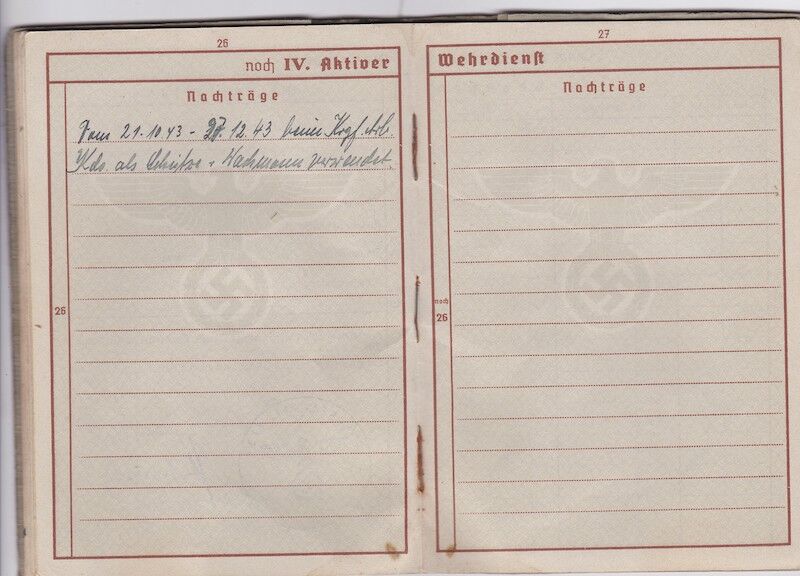 26
noch IV. Aktiver
Nachträge
Vom 21.10.43 - 27.12.43 beim Krgf. Arb.
Kdo. als Schütze u. Wachmann verwendet.
26
27
Wehrdienst
Nachträge
noch
26